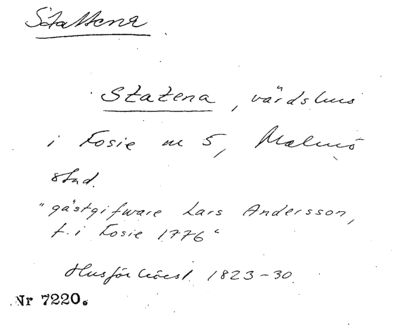 Stattena
Statena, värdshus
i Fosie nr 5, Malmö
stad.
"gästgifware Lars Andersson,
f. i Fosie 1776"
Husförhörsl. 1823-30.
Nr 7220.